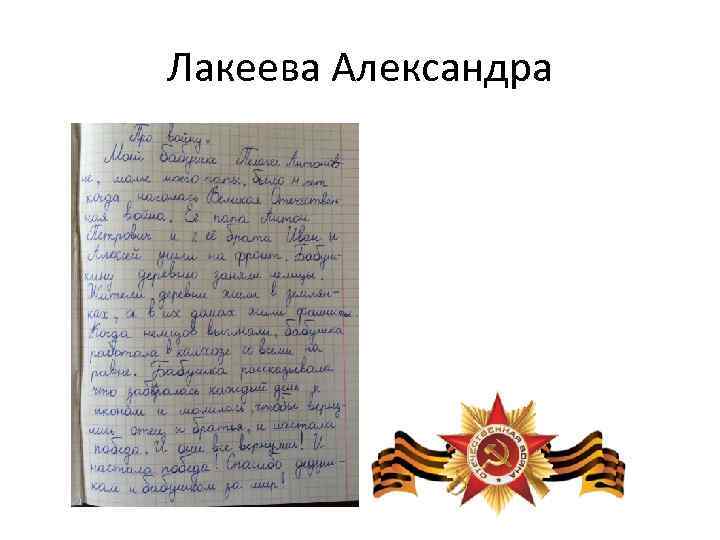 Лакеева Александра
Про войну.
Моей бабушке Пелагее Антонов-
не, маме моего папы, было 11 лет
когда началась Великая Отечествен-
ная война. Её папа Антон
Петрович и 2 её брата Иван и
Алексей ушли на фронт. Бабуш-
кину деревню заняли немцы.
Жители деревни жили в землян-
ках, а в их домах жили фашисты.
Когда немцов выгнали, бабушка
работала в колхозе со всеми на
равне. Бабушка рассказывала
что забералась каждый день к
иконам и молилась, чтобы верну-
лись отец и братья, и настала
победа. И они все вернулись! И
настала победа! Спасибо дедуш-
кам и бабушкам за мир!
ОТЕЧЕСТВЕННАЯ ВОЙНА